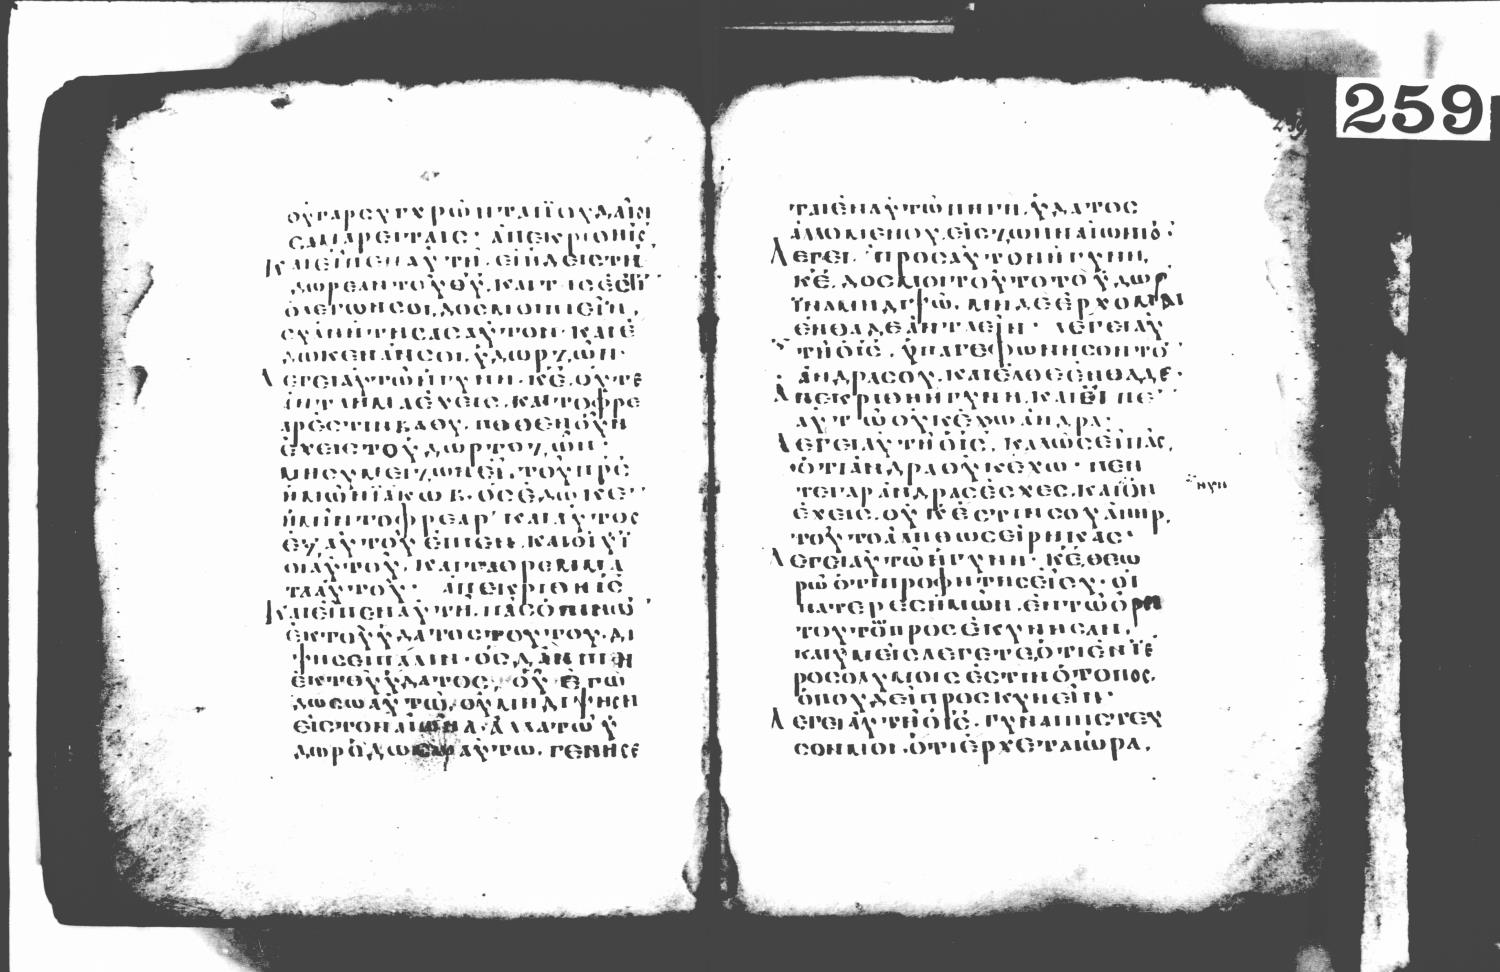 ΟΥΓΑΡΣΥΓΧΡΩΝΤΑΙΪΟΥΔΑΙΟΙ
ΣΑΜΑΡΕΙΤΑΙΣ· ΑΠΕΚΡΙΘΗΙΣ
ΚΑΙΕΙΠΕΝΑΥΤΗ. ΕΙΗΔΕΙΣΤΗ
ΔΩΡΕΑΝΤΟΥΘΥ. ΚΑΙΤΙΣΕΣΤΙ
ΟΛΕΓΩΝΣΟΙ. ΔΟΣΜΟΙΠΙΕΙΝ.
ΣΥΑΝΗΤΗΣΑΣΑΥΤΟΝ· ΚΑΙΕ
ΔΩΚΕΝΑΝΣΟΙ. ΥΔΩΡΖΩΝ·
ΛΕΓΕΙΑΥΤΩΗΓΥΝΗ. ΚΕ. ΟΥΤΕ
ΑΝΤΛΗΜΑΕΧΕΙΣ. ΚΑΙΤΟΦΡΕ
ΑΡΕΣΤΙΝΒΑΘΥ. ΠΟΘΕΝΟΥΝ
ΕΧΕΙΣΤΟΥΔΩΡΤΟΖΩΝ·
ΜΗΣΥΜΕΙΖΩΝΕΙ. ΤΟΥΠΡΣ
ΗΜΩΝΪΑΚΩΒ. ΟΣΕΔΩΚΕ
ΗΜΙΝΤΟΦΡΕΑΡ· ΚΑΙΑΥΤΟΣ
ΕΞΑΥΤΟΥΕΠΙΕΝ. ΚΑΙΟΙΥΙ
ΟΙΑΥΤΟΥ. ΚΑΙΤΑΘΡΕΜΜΑ
ΤΑΑΥΤΟΥ· ΑΠΕΚΡΙΘΗΙΣ
ΚΑΙΕΙΠΕΝΑΥΤΗ. ΠΑΣΟΠΙΝΩ
ΕΚΤΟΥΥΔΑΤΟΣΤΟΥΤΟΥ. ΔΙ
ΨΗΣΕΙΠΑΛΙΝ· ΟΣΔΑΝΠΙΗ
ΕΚΤΟΥΥΔΑΤΟΣ. ΟΥ ΕΓΩ
ΔΩΣΩΑΥΤΩ. ΟΥΜΗΔΙΨΗΣΗ
ΕΙΣΤΟΝΑΙΩΝΑ· ΑΛΛΑΤΩΥ
ΔΩΡΟΔΩΣΩΑΥΤΩ. ΓΕΝΗΣΕ
ΤΑΙΕΝΑΥΤΩΠΗΓΗ. ΥΔΑΤΟΣ
ΑΛΛΟΜΕΝΟΥ. ΕΙΣΖΩΗΝΑΙΩΝΙΟ·
ΛΕΓΕΙ ΠΡΟΣΑΥΤΟΝΗΓΥΝΗ.
ΚΕ. ΔΟΣΜΟΙΤΟΥΤΟΤΟΥΔΩΡ
ΪΝΑΜΗΔΙΨΩ. ΜΗΔΕΕΡΧΟΜΑΙ
ΕΝΘΑΔΕΑΝΤΛΕΙΝ· ΛΕΓΕΙΑΥ
ΤΗΟΙΣ. ΥΠΑΓΕΦΩΝΗΣΟΝΤΟ
ΑΝΔΡΑΣΟΥ. ΚΑΙΕΛΘΕΕΝΘΑΔΕ·
ΑΠΕΚΡΙΘΗΗΓΥΝΗ. ΚΑΙΕΙΠΕ
ΑΥΤΩΟΥΚΕΧΩΑΝΔΡΑ·
ΛΕΓΕΙΑΥΤΗΟΙΣ. ΚΑΛΩΣΕΙΠΑΣ.
ΟΤΙΑΝΔΡΑΟΥΚΕΧΩ· ΠΕΝ
ΤΕΓΑΡΑΝΔΡΑΣΕΣΧΕΣ. ΚΑΙΟΝ
ΕΧΕΙΣ. ΟΥΚΕΣΤΙΝΣΟΥΑΝΗΡ.
ΤΟΥΤΟΑΛΗΘΩΣΕΙΡΗΚΑΣ·
ΛΕΓΕΙΑΥΤΩΗΓΥΝΗ· ΚΕ. ΘΕΩ
ΡΩΟΤΙΠΡΟΦΗΤΗΣΕΙΣΥ· ΟΙ
ΠΑΤΕΡΕΣΗΜΩΝ. ΕΝΤΩΟΡΕΙ
ΤΟΥΤΩΠΡΟΣΕΚΥΝΗΣΑΝ.
ΚΑΙΥΜΕΙΣΛΕΓΕΤΕ. ΟΤΙΕΝΪΕ
ΡΟΣΟΛΥΜΟΙΣΕΣΤΙΝΟΤΟΠΟΣ.
ΟΠΟΥΔΕΙΠΡΟΣΚΥΝΕΙΝ·
ΛΕΓΕΙΑΥΤΗΟΙΣ. ΓΥΝΑΙΠΙΣΤΕΥ
ΣΟΝΜΟΙ. ΟΤΙΕΡΧΕΤΑΙΩΡΑ.
259